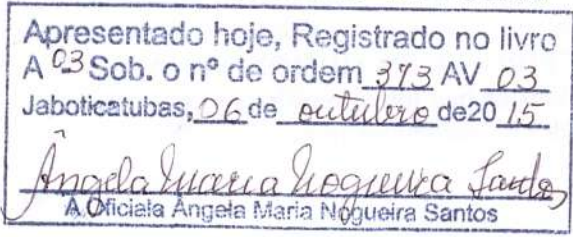 Apresentado hoje, Registrado no livro
A 03 Sob. o nº de ordem 373 AV 03
Jaboticatubas, 06 de outubro de 20 15
Ângela Maria Nogueira Santos
A Oficiala Ângela Maria Nogueira Santos